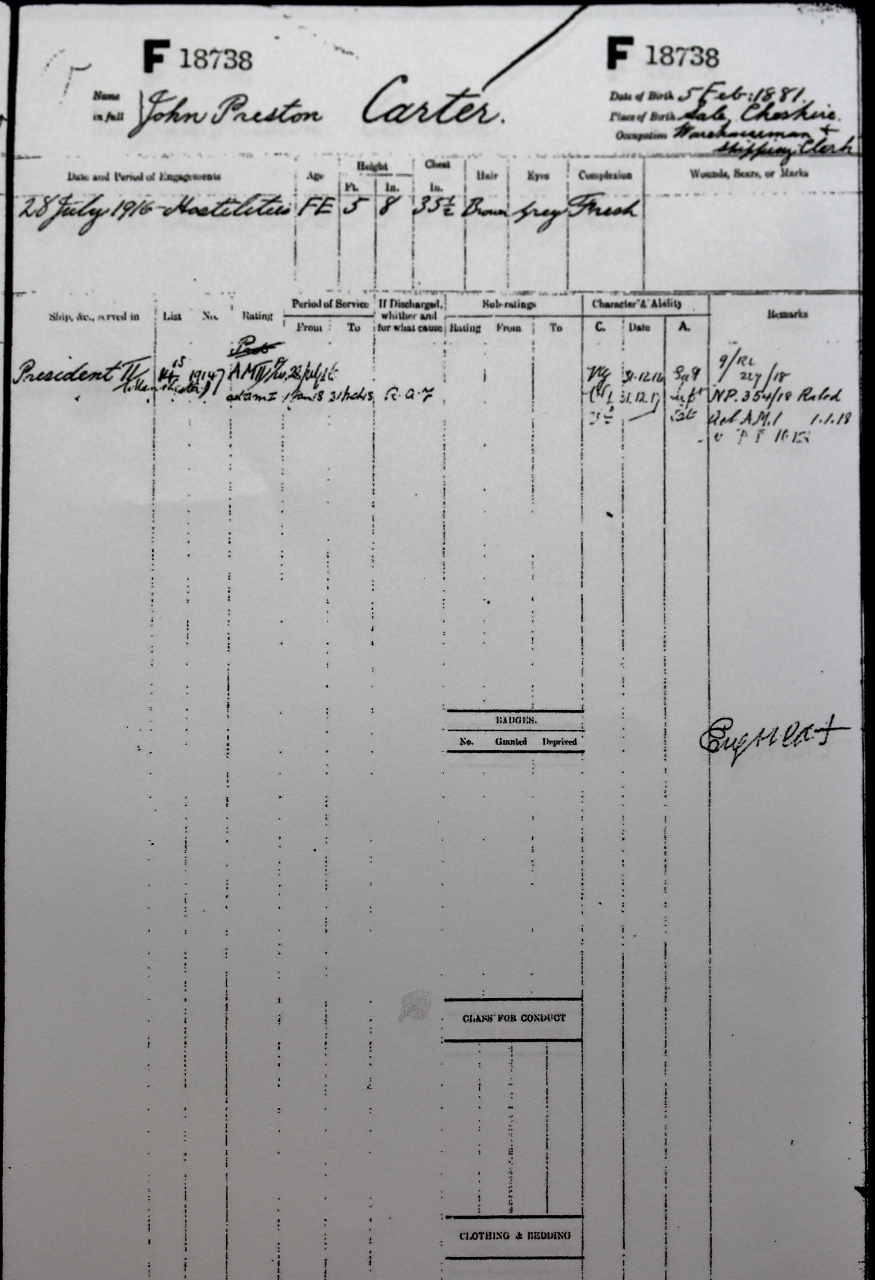 F 18738 F 18738
Name in full John Preston Carter.
Date of Birth 5 Feb: 1881.
Place of Birth Sale, Cheshire.
Occupation Warehouseman &
Shipping Clerk
Date and Period of Engagements Age Height Chest Hair Eyes Complexion Wounds, Scars, or Marks
Ft. In. In.
28 July 1916 - Hostilities FE 5 8 35½ Brown Grey Fresh
Ship, &c., served in List No. Rating Period of Service If Discharged, whither and for what cause Sub-ratings Character & Ability Remarks
From To Rating From To C. Date A.
President II 15 28 July 16 VG 31.12.16
1 Jan 18 31 Mch 18 R.A.F 31.12.17 N.P. 354/18 Rated
A.M.1 1.1.18
BADGES.
No. Granted Deprived
CLASS FOR CONDUCT
CLOTHING & BEDDING